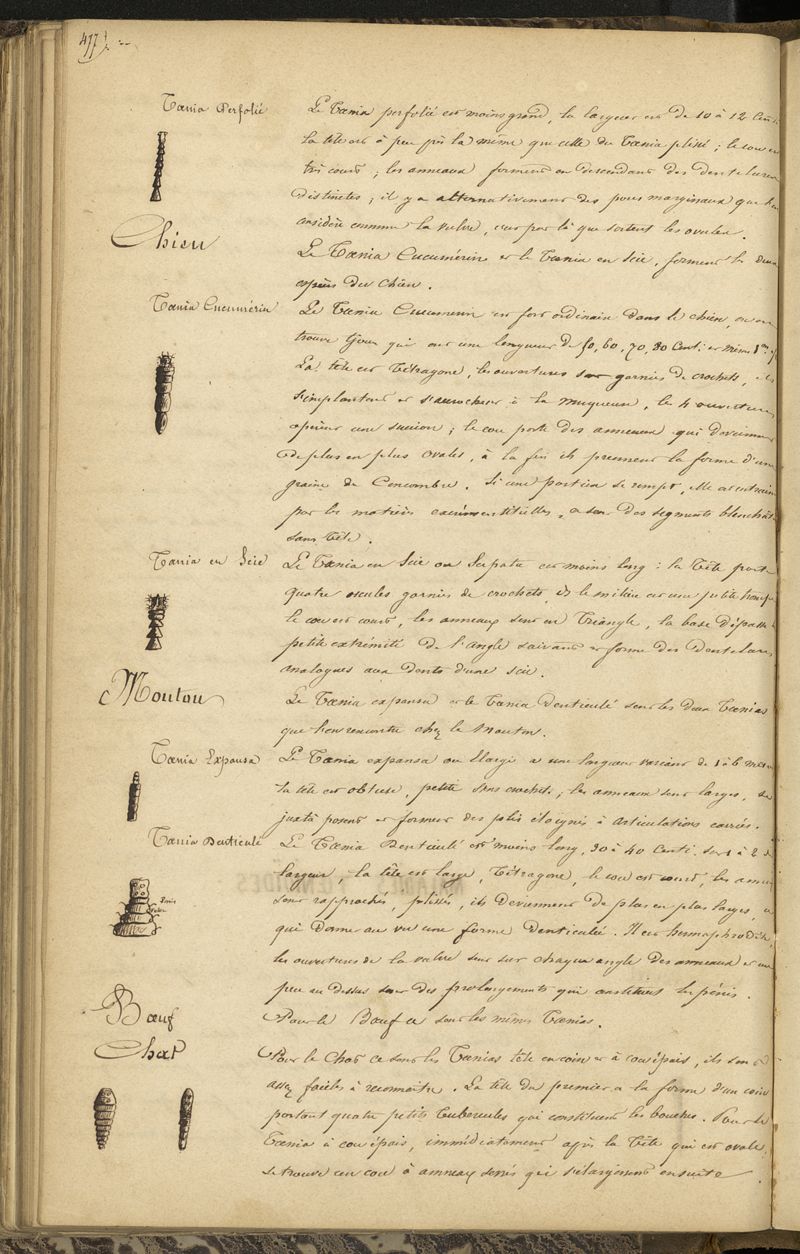 477
Tænia Perfolié
Le Tænia perfolié est moins grand, la largeur est de 10 à 12 Cent.
la tête est à peu près la même que celle du Tænia plissé ; le cou est
très court ; les anneaux forment en descendant des dentelures
distinctes ; il y a alternativement des pores marginaux que l'on
considère comme la vulve, car par là que sortent les ovules.
Chien
Le Tænia Cucumérin et le Tænia en Scie, forment les deux
espèces du chien.
Tænia Cucumérin
Le Tænia Cucumérin est fort ordinaire dans le chien, on en
trouve qui ont une longueur de 50, 60, 70, 80 Cent. et même 1m
La tête est Tétragone, les ouvertures sont garnies de crochets,
s'implantent et s'accrochent à la muqueuse, les 4 ouvertures
opèrent une succion ; le cou porte des anneaux qui deviennent
de plus en plus ovales, à la fin ils prennent la forme d'une
graine de Concombre. Si une portion se rompt, elle est entrainée
par les matières excrémentitielles, ce sont des segments blanchâtres
sans tête.
Tænia en Scie
Le Tænia en Scie ou Serrata est moins long : la Tête porte
quatre oscules garnies de crochets, le milieu est une petite houppe
le cou est court, les anneaux sont en Triangle, la base dépasse
petite extrémité de l'angle suivant et forme des Dentelures
analogues aux dents d'une scie.
Mouton
Le Tænia expansa et le Tænia Denticulé sont les deux Tænias
que l'on rencontre chez le mouton.
Tænia Expansa
Le Tænia expansa ou élargi a une longueur variant de 1 à 6 mètres
la tête est obtuse, petite sans crochets ; les anneaux sont larges, se
juxta posent et forment des plis éloignés à articulations carrées.
Tænia Denticulé
Le Tænia Denticulé est moins long, 30 à 40 Centi. sur 1 à 2 de
largeur, la tête est large, Tétragone, le cou est court, les anneaux
sont rapprochés, plissés, ils deviennent de plus en plus larges, ce
qui donne au ver une forme denticulée. Il est hermaphrodite,
les ouvertures de la vulve sont sur chaque angle des anneaux et un
peu au dessus sont des prolongements qui constituent les pénis.
Bœuf
Pour le Bœuf ce sont les mêmes Tænias.
Chat
Pour le Chat ce sont les Tænias tête en coin et à cou épais, ils sont
assez faciles à reconnaître. La tête du premier a la forme d'un coin
portant quatre petits tubercules qui constituent les bouches. Pour le
Tænia à cou épais, immédiatement après la Tête qui est ovale,
se trouve un cou à anneaux serrés qui s'élargissent ensuite